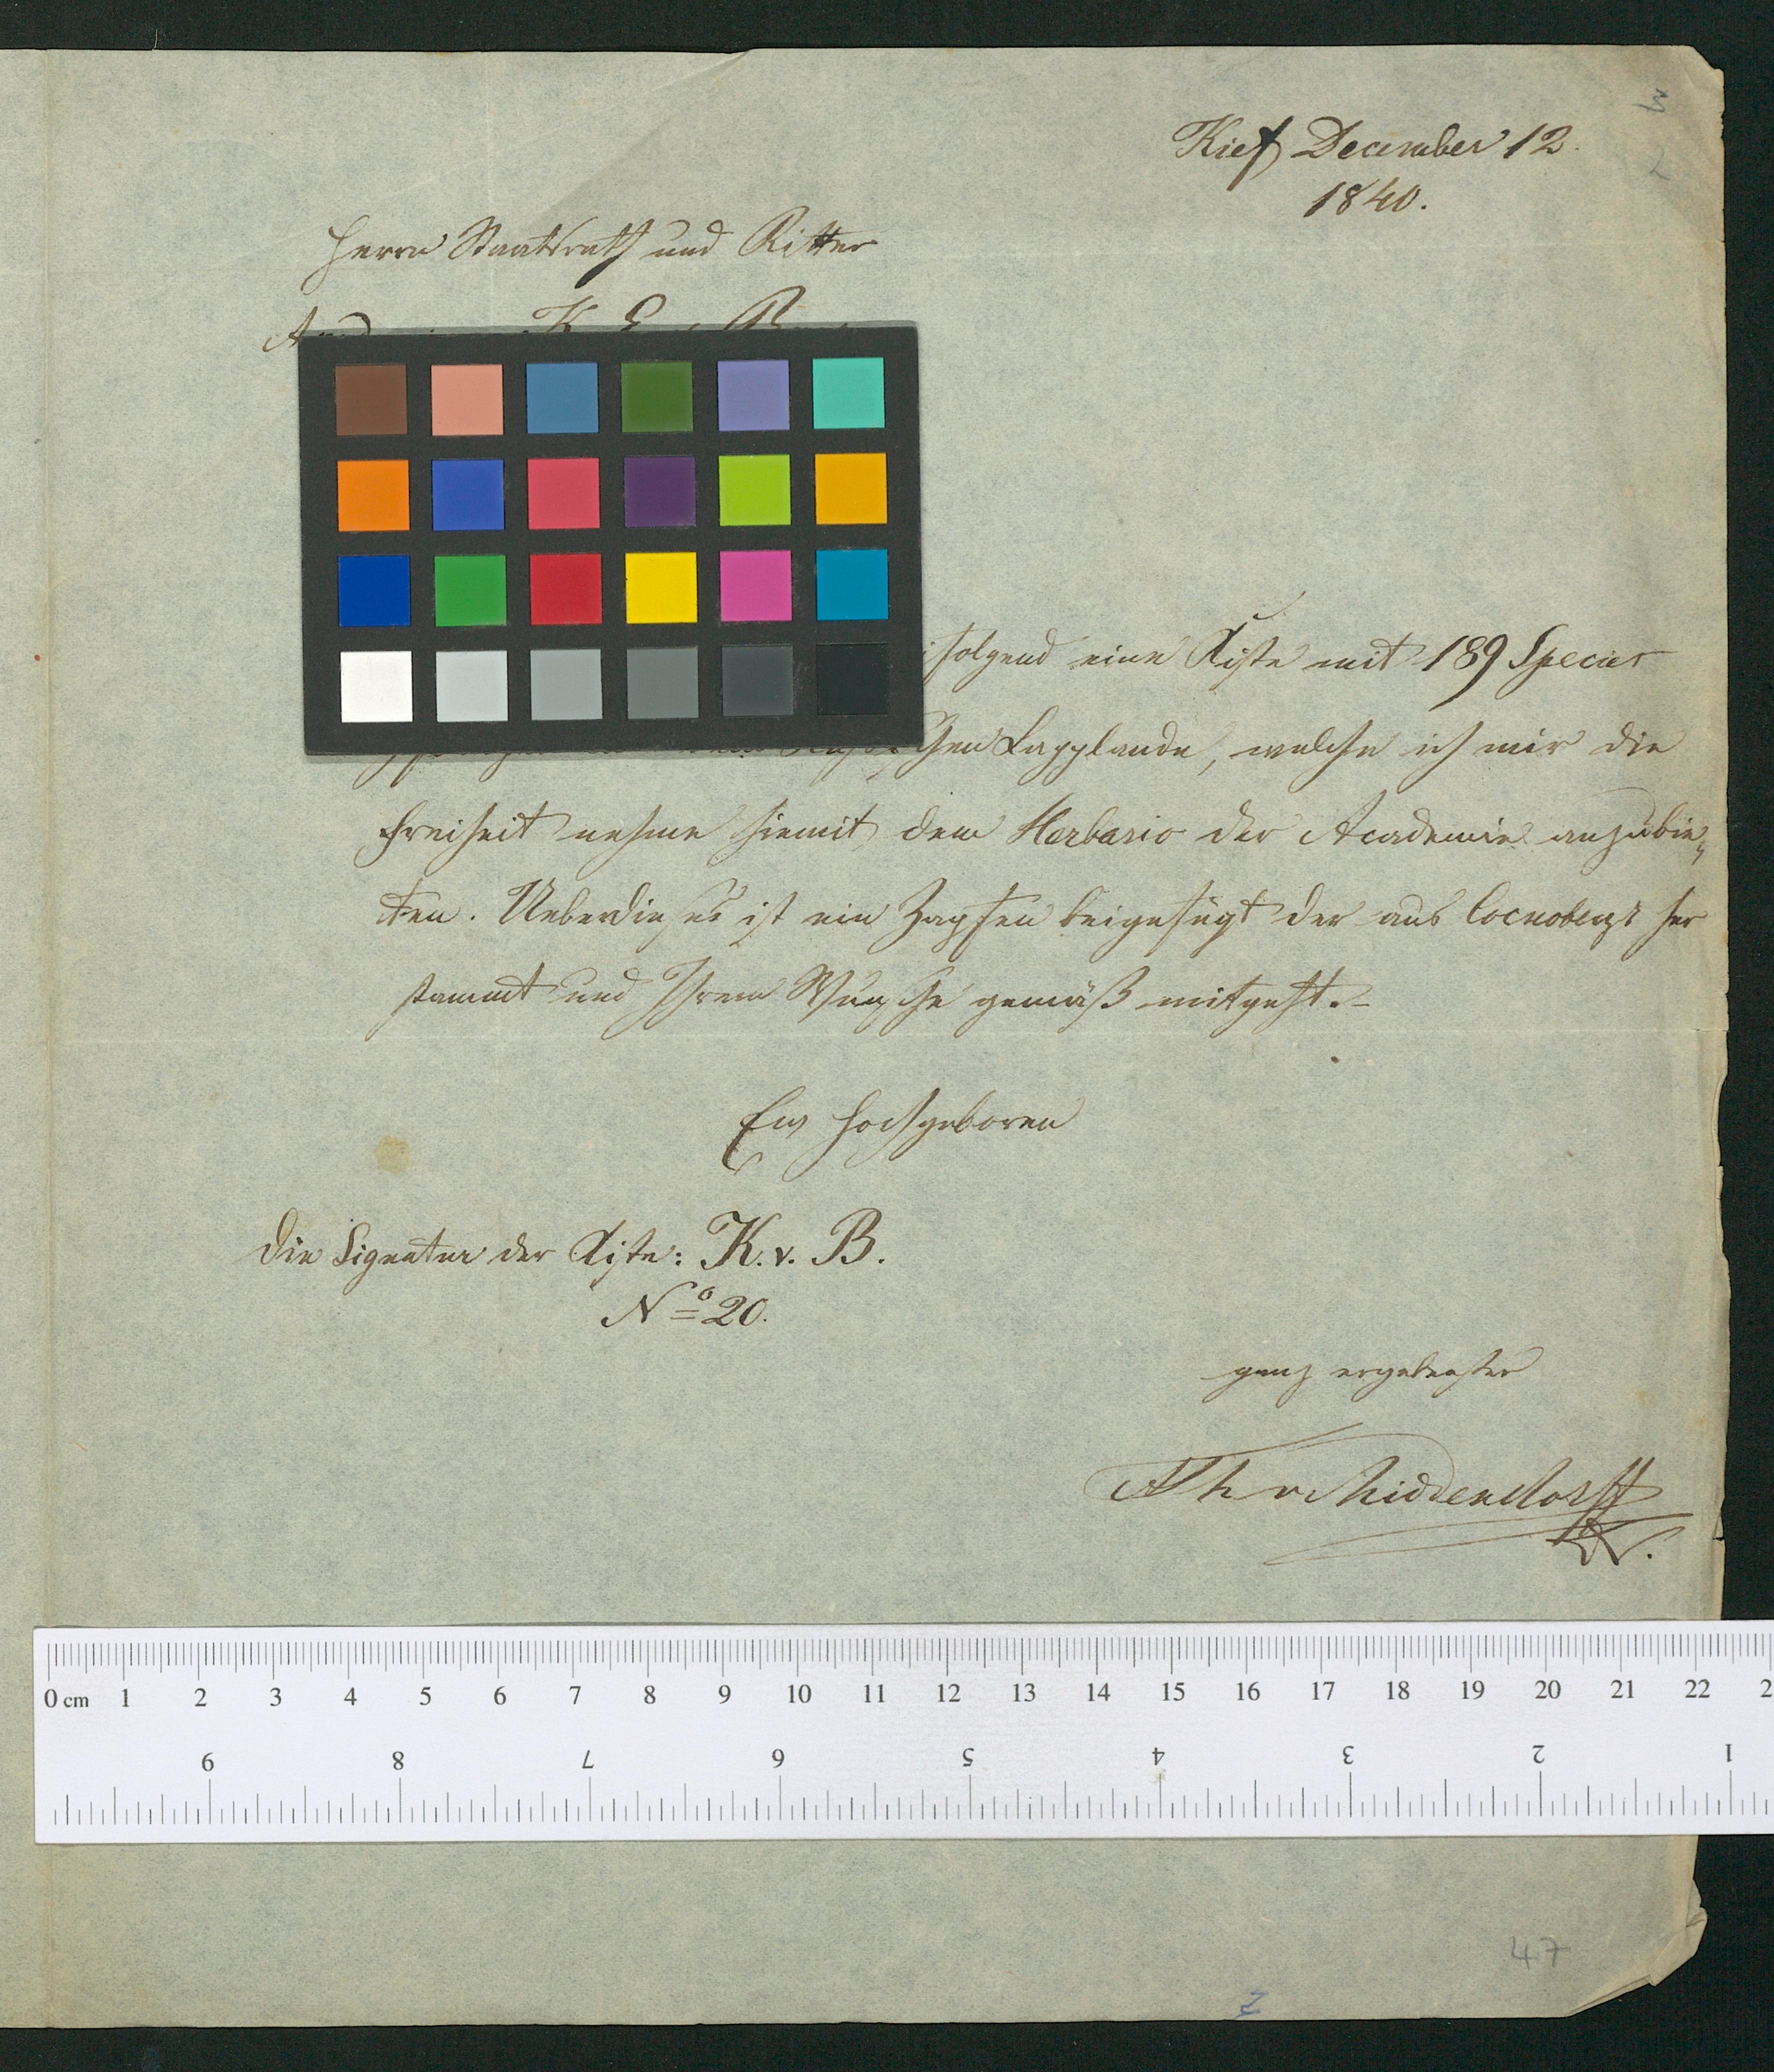 Kief December 12.
1840.
Herrn Staatsrath und Ritter
folgend eine Kiste mit 189 Species
Lapplande, welche ich mir die
Freiheit nehme hiemit dem Herbario der Academie anzubie„
ten. Ueberdieses ist ein Zapfen beigefügt der aus her
stammt und Ihrem Wunsche gemäß mitgeht.-
Ew Hochgeboren
Die Signatur der Kiste: K. v. B.
No 20.
ganz ergebenster
A Th v Middendorff
0 cm 1 2 3 4 5 6 7 8 9 10 11 12 13 14 15 16 17 18 19 20 21 22 2
9 8 7 6 5 4 3 2 1
47